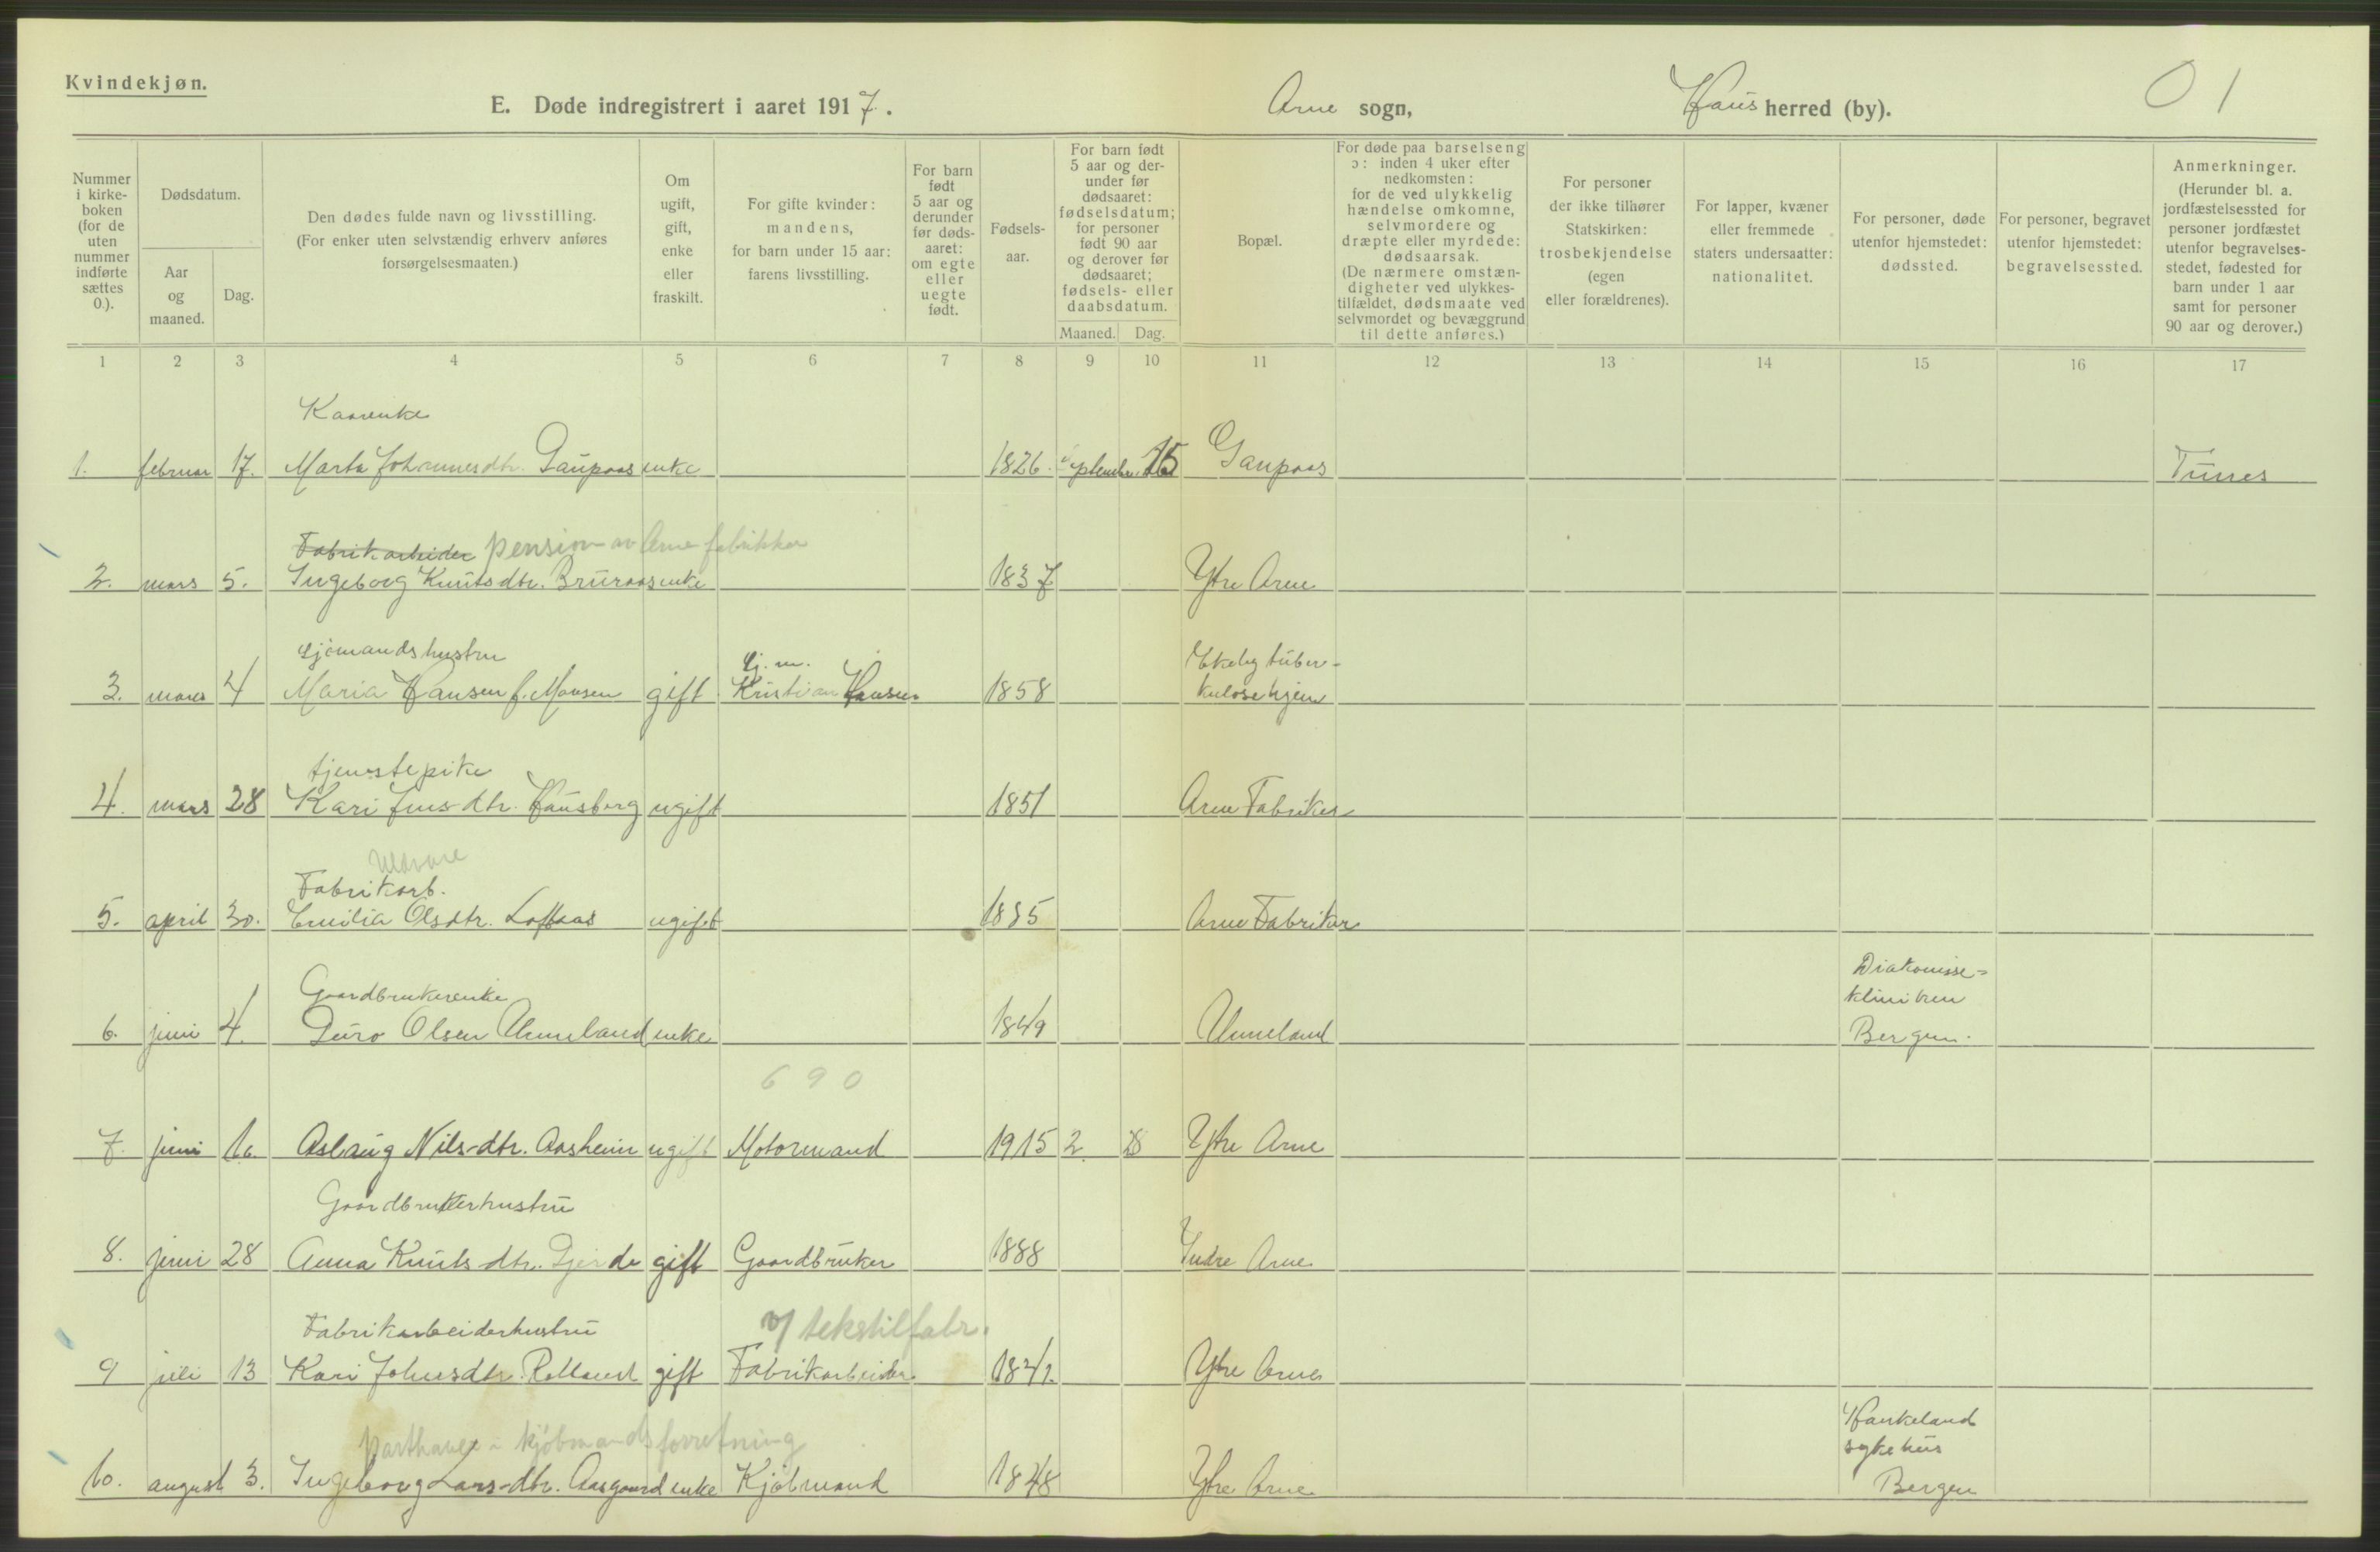 Kvindekjøn.
E. Døde indregistrert i aaret 1917.
Arne sogn,
Haus herred (by).
0 1
Nummer i kirke- boken (for de uten nummer indførte sættes 0.).
Dødsdatum.
Aar og maaned.
Dag.
Den dødes fulde navn og livsstilling.
(For enker uten selvstændig erhverv anføres forsørgelsesmaaten.)
Om ugift, gift, enke eller fraskilt.
For gifte kvinder: mandens, for barn under 15 aar: farens livsstilling.
For barn født 5 aar og derunder før døds- aaret: om egte eller uegte født.
Fødsels- aar.
For barn født 5 aar og der- under før dødsaaret: fødselsdatum; for personer født 90 aar og derover før dødsaaret; fødsels- eller daabsdatum.
Maaned. Dag.
Bopæl.
For døde paa barselseng ɔ: inden 4 uker efter nedkomsten: for de ved ulykkelig hændelse omkomne, selvmordere og dræpte eller myrdede: dødsaarsak. (De nærmere omstæn- digheter ved ulykkes- tilfældet, dødsmaate ved selvmordet og bevæggrund til dette anføres.)
For personer der ikke tilhører Statskirken: trosbekjendelse (egen eller forældrenes).
For lapper, kvæner eller fremmede staters undersaatter: nationalitet.
For personer, døde utenfor hjemstedet: dødssted.
For personer, begravet utenfor hjemstedet: begravelsessted.
Anmerkninger. (Herunder bl. a. jordfæstelsessted for personer jordfæstet utenfor begravelses- stedet, fødested for barn under 1 aar samt for personer 90 aar og derover.)
1 2 3 4 5 6 7 8 9 10 11 12 13 14 15 16 17
Kaarenke
1. februar 17. Marta Johannesdtr. Gaupaas enke 1826. September 15 Gaupaas Tunes
Fabrikarbeider pension av Arne fabrikker
2. mars 5. Ingeborg Knutsdtr. Bruraas enke 1837 Ytre Arne
Sjømandshustru Sj. m. Ekeby tuber-
3. mars 4 Maria Hansen f. Monsen gift Kristian Hansen 1858 kulosehjem
tjenstepike
4. mars 28 Kari Jens-dtr. Hausberg ugift 1851 Arne Fabriker
Uldvare
Fabrikarb.
5. april 30. Emilia Olsdtr. Loftaas ugift 1885 Arne Fabriker
Gaardbrukerenke Diakonisse-
kliniken
6. juni 4. Guro Olsen Unneland enke 1849 Unneland Bergen.
690
7. juni 16. Aslaug Nils-dtr. Aasheim ugift Motormand 1915 2. 28 Ytre Arne
Gaardbrukerhustru
8. juni 28 Anna Knuts-dtr. Gjerde gift Gaardbruker 1888 Indre Arne
Fabrikarbeiderhustru v/ tekstilfabr.
9 juli 13 Kari Johnsdtr. Rolland gift Fabrikarbeider 1841. Ytre Arne
Parthaver i kjøbmandsforretning Haukeland
sykehus
10. august 3. Ingeborg Lars-dtr. Aasgaard enke Kjøbmand 1848 Ytre Arne Bergen